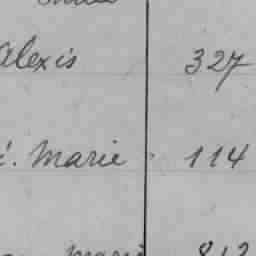 Alexis 327
é. Marie 114
Marie 812